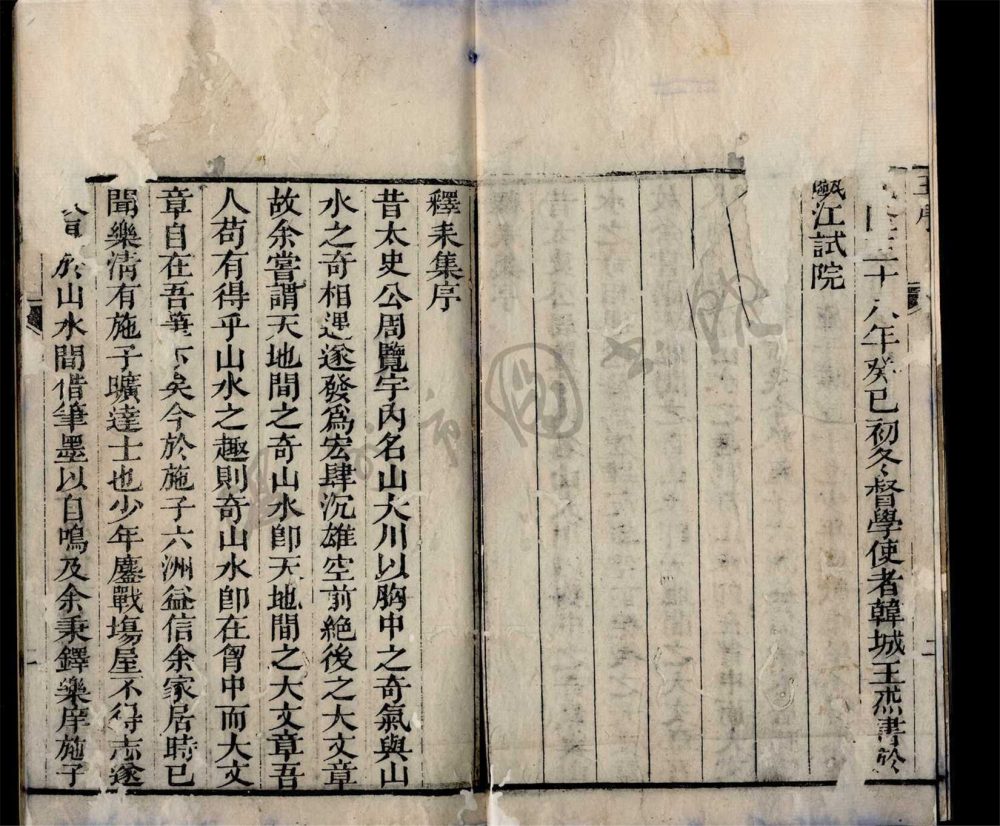 隆三十八年癸巳初冬督學使者韓城王杰書於
甌江試院
釋耒集序
昔太史公周覽宇內名山大川以胸中之奇氣與山
水之奇相遇遂發爲宏肆沉雄空前絕後之大文章
故余嘗謂天地間之奇山水卽天地間之大文章吾
人苟有得乎山水之趣則奇山水卽在胷中而大文
章自在吾筆下矣今於施子六洲益信余家居時已
聞樂淸有施子曠達士也少年鏖戰塲屋不得志遂
於山水間借筆墨以自鳴及余秉鐸樂庠施子